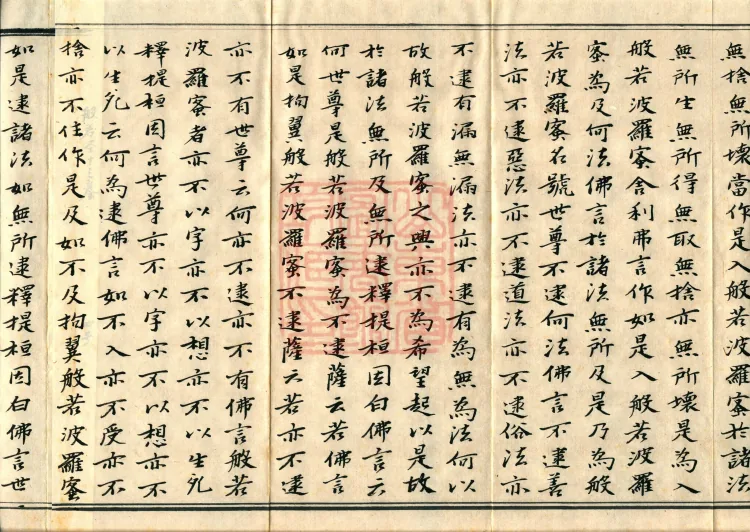 無捨無所壞當作是入般若波羅蜜於諸法
無所生無所得無取無捨亦無所壞是為入
般若波羅蜜舍利弗言作如是入般若波羅
蜜為及何法佛言於諸法無所及是乃為般
若波羅蜜名號世尊不逮何法佛言不逮善
法亦不逮惡法亦不逮道法亦不逮俗法亦
不逮有漏無漏法亦不逮有為無為法何以
故般若波羅蜜之興亦不為希望起以是故
於諸法無所及無所逮釋提桓因白佛言云
何世尊是般若波羅蜜為不逮薩云若佛言
如是拘翼般若波羅蜜不逮薩云若亦不逮
亦不有世尊云何亦不逮亦不有佛言般若
波羅蜜者亦不以字亦不以想亦不以生死
釋提桓因言世尊亦不以字亦不以想亦不
以生死云何為逮佛言如不入亦不受亦不
捨亦不住作是及如不及拘翼般若波羅蜜
如是逮諸法如無所逮釋提桓因白佛言世